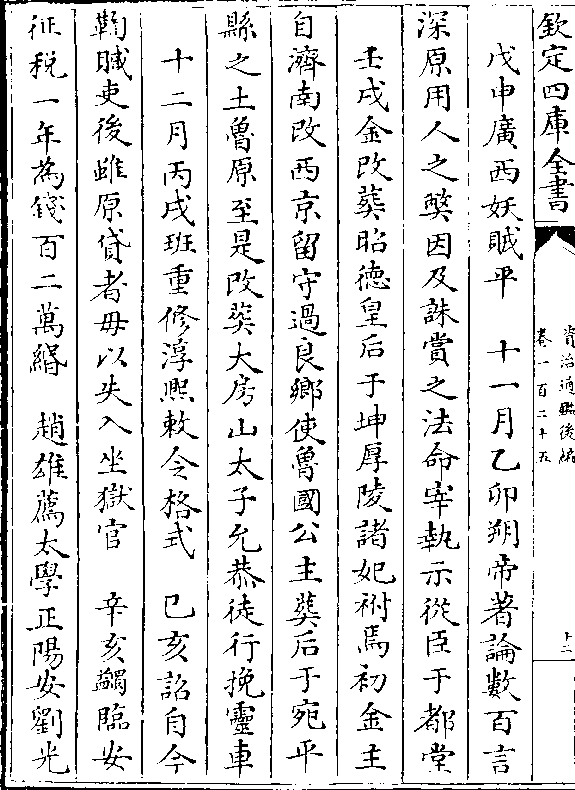 欽定四庫全書
資治通鑑後編
卷一百二十五
十二
戊申廣西妖賊平　十一月乙卯朔帝著論數百言
深原用人之弊因及誅賞之法命宰執示從臣于都堂
壬戌金改葬昭德皇后于坤厚陵諸妃祔焉初金主
自濟南改西京留守過良鄉使魯國公主葬后于宛平
縣之土魯原至是改葬大房山太子允恭徒行挽靈車
十二月丙戌班重修淳熙敕令格式　己亥詔自今
鞫贓吏後雖原貸者毋以失入坐獄官　辛亥蠲臨安
征税一年為錢百二萬緡　趙雄薦太學正陽安劉光